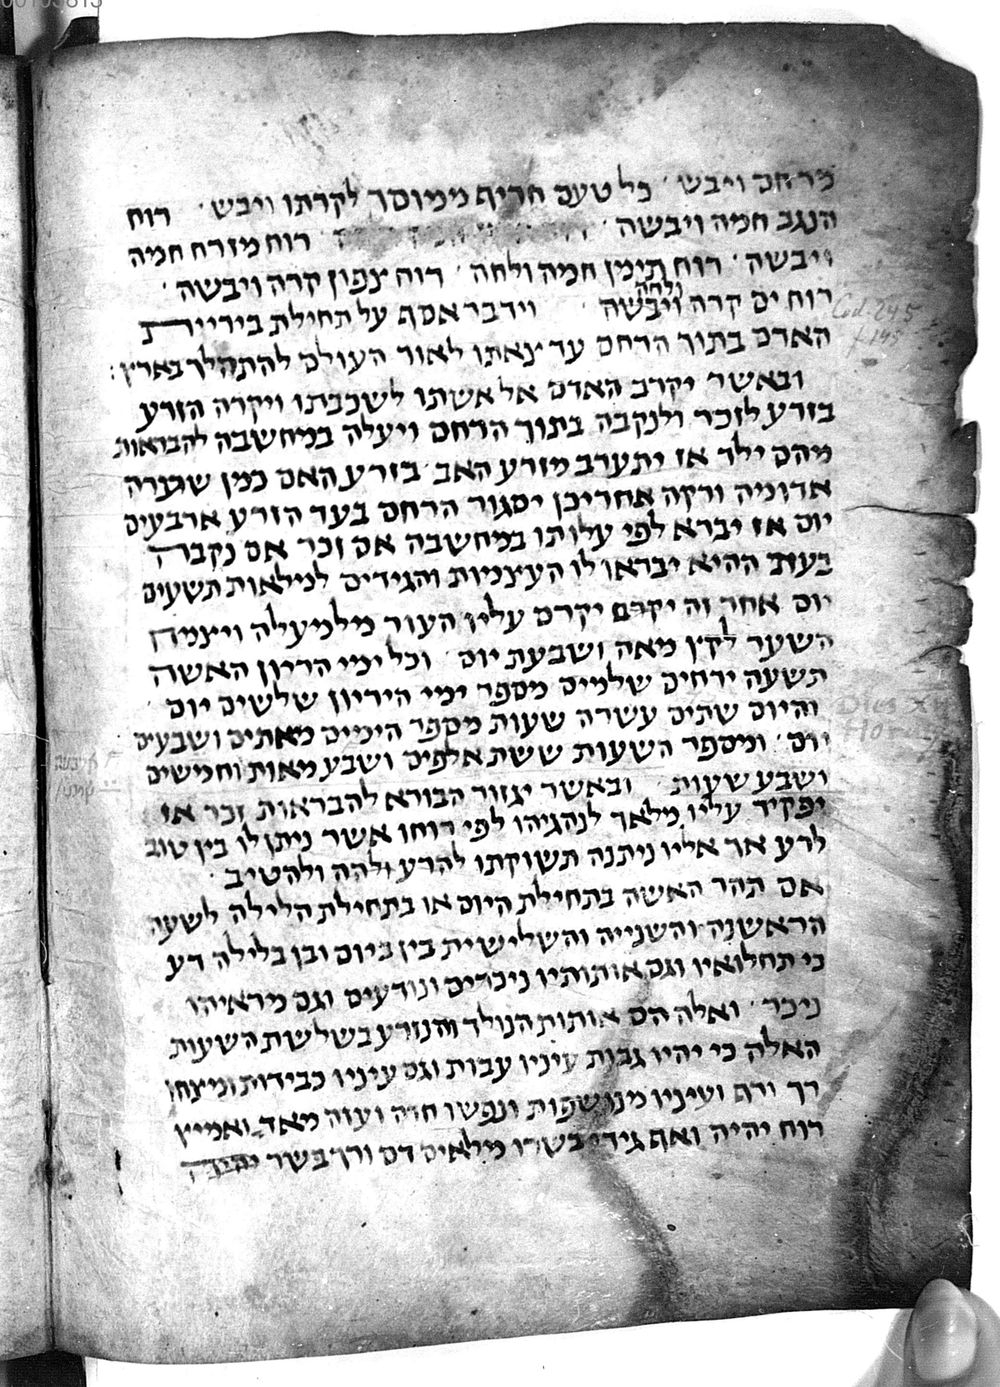 00105815
מרחם ויבש · כל טעם חריף ממוסך לקרתו ויבש · רוח
הנגב חמה ויבשה · רוח מזרח חמה
ויבשה · רוח תימן חמה ולחה · רוח צפון קרה ויבשה ·
ולחה
רוח ים קרה ויבשה · וידבר אסף על תחילת ביריית
Cod. 245
האדם בתוך הרחם עד צאתו לאור העולם להתהלך בארץ :
ובאשר יקרב האדם אל אשתו לשכבתו ויקרה הזרע
בזרע לזכר ולנקבה בתוך הרחם ויעלה במחשבה להבראות
מהם ילד אז יתערב מזרע האב בזרע האם כמן
אדומיה ורקה אחריכן יסגור הרחם בעד הזרע ארבעים
יום אז יברא לפי עלותו במחשבה אם זכר אם נקבה
בעת ההיא יבראו לו העצמיות והגידים למלאות תשעים
יום אחר זה יקרם יקרם עליו העור מלמעלה ויצמח
השער לקץ מאה ושבעת יום · וכל ימי הריון האשה
תשעה ירחים שלמים מספר ימי היריון שלשים יום
והיום שתים עשרה שעות מספר הימים מאתים ושבעים
Dies
יום · ומספר השעות ששת אלפים ושבע מאות וחמשים
ושבע שעות · ובאשר יגזור הבורא להבראות זכר אז
יפקיד עליו מלאך לנהגיהו לפי רוחו אשר ניתן לו בין טוב
לרע אך אליו ניתנה תשוקתו להרע ולהטיב ·
אם תהר האשה בתחילת היום או בתחילת הלילה לשעה
הראשנה והשנייה והשלישית בין ביום ובן בלילה דע
כי תחלואיו וגם אותותיו ניכרים ונודעים וגם מראיהו
ניכר · ואלה הם אותות הנולד והנזרע בשלשת השעות
האלה כי יהיו גבות עיניו עבות וגם עיניו כבידות ומצחו
רך ורם ועיניו ונפשו חזה ועזה מאד ואמיץ
רוח יהיה ואף גידי בשרו מילאים דם ורך בשר יהיה